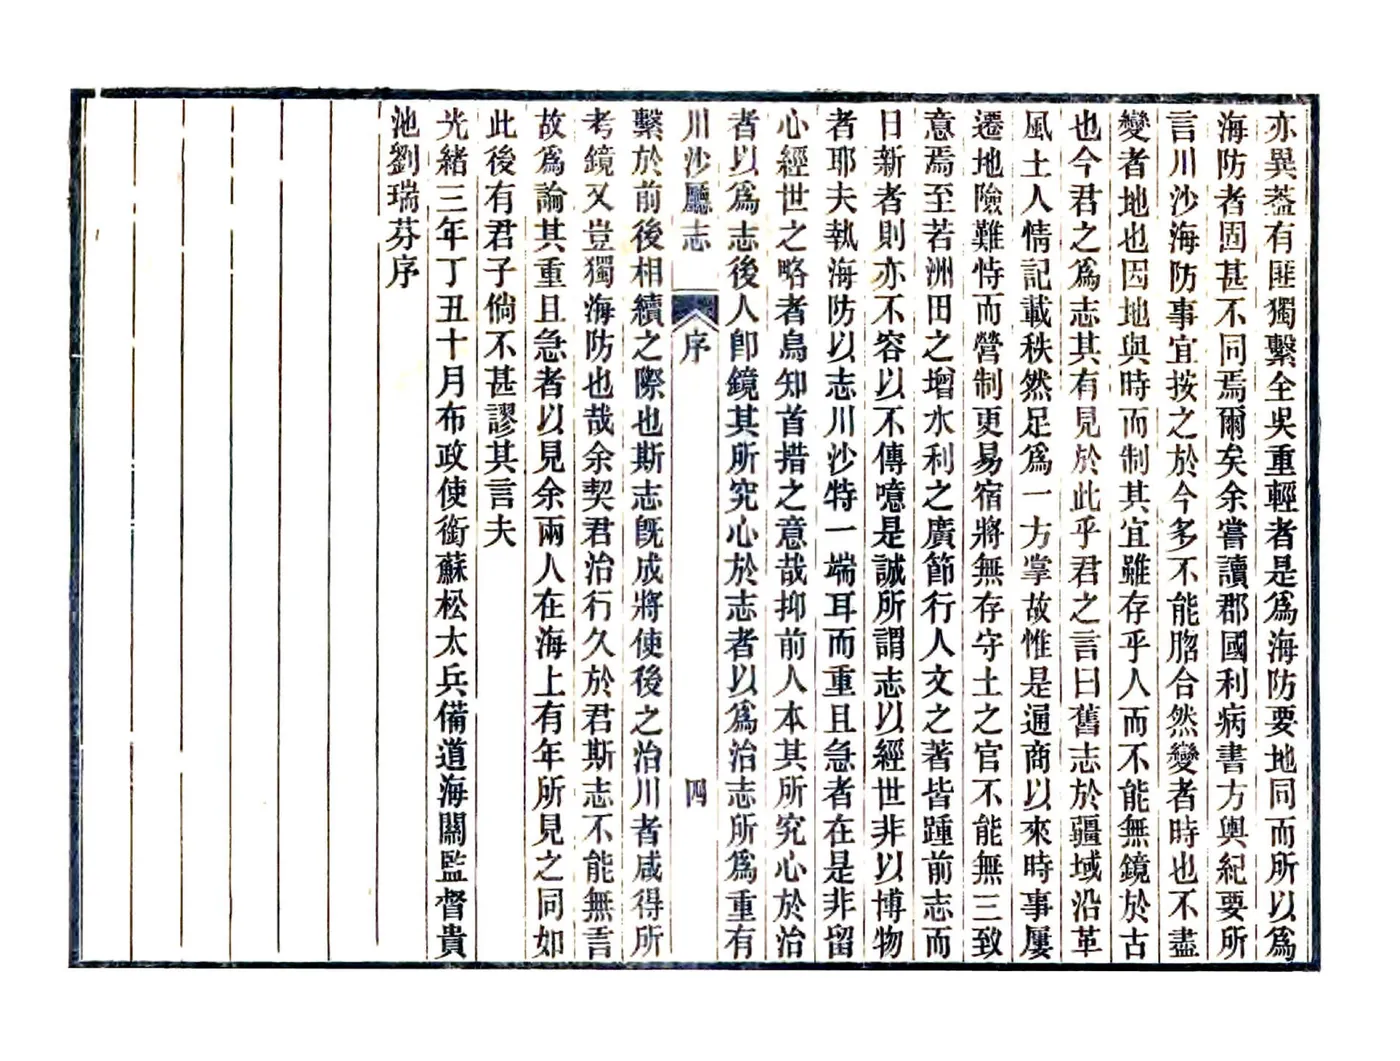 亦異葢有匪獨繫全吳重輕者是爲海防要地同而所以爲
海防者固甚不同焉爾矣余嘗讀郡國利病書方輿紀要所
言川沙海防事宜按之於今多不能脗合然變者時也不盡
變者地也因地與時而制其宜雖存乎人而不能無鏡於古
也今君之爲志其有見於此乎君之言曰舊志於疆域沿革
風土人情記載秩然足爲一方掌故惟是通商以來時事屢
遷地險難恃而營制更易宿將無存守土之官不能無三致
意焉至若洲田之增水利之廣節行人文之著皆踵前志而
日新者則亦不容以不傳噫是誠所謂志以經世非以博物
者耶夫執海防以志川沙特一端耳而重且急者在是非留
心經世之略者烏知首措之意哉抑前人本其所究心於治
者以爲志後人卽鏡其所究心於志者以爲治志所爲重有
川沙廳志 序 四
繫於前後相續之際也斯志旣成將使後之治川者咸得所
考鏡又豈獨海防也哉余契君治行久於君斯志不能無言
故爲論其重且急者以見余兩人在海上有年所見之同如
此後有君子倘不甚謬其言夫
光緒三年丁丑十月布政使銜蘇松太兵備道海關監督貴
池劉瑞芬序